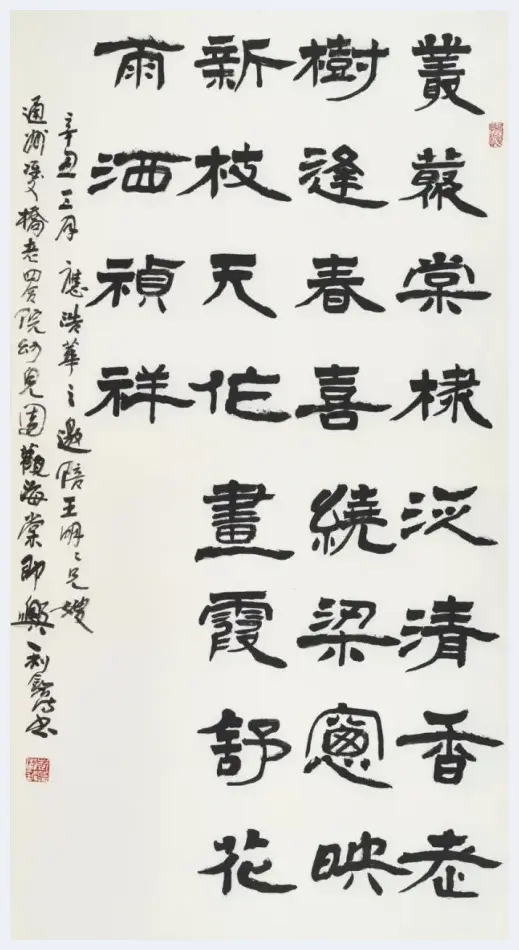 叢藂棠棣泛清香老
樹逢春喜繞梁窗映
新枝天作畫霞舒花
雨洒禎祥
辛丑三月應浩華之邀陪王明〻兄嫂
通州雙橋老四合院幼兒園觀海棠即興利詩書